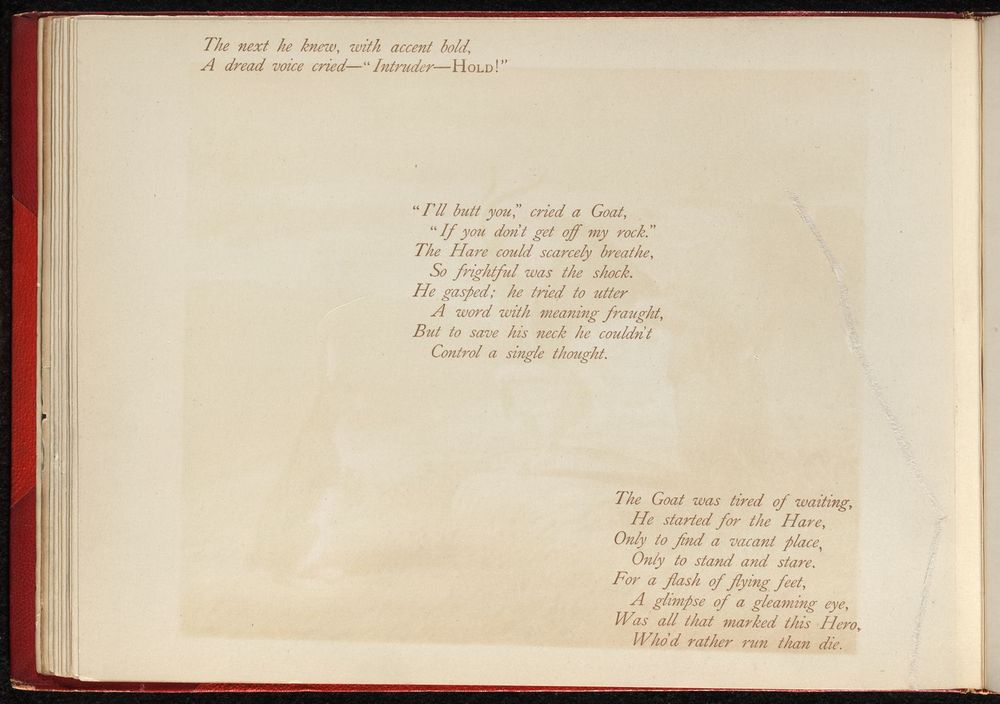 The next he knew, with accent bold,
A dread voice cried—“Intruder—HOLD!”
“I’ll butt you,” cried a Goat,
“If you don’t get off my rock.”
The Hare could scarcely breathe,
So frightful was the shock.
He gasped; he tried to utter
A word with meaning fraught,
But to save his neck he couldn’t
Control a single thought.
The Goat was tired of waiting,
He started for the Hare,
Only to find a vacant place,
Only to stand and stare.
For a flash of flying feet,
A glimpse of a gleaming eye,
Was all that marked this Hero,
Who’d rather run than die.